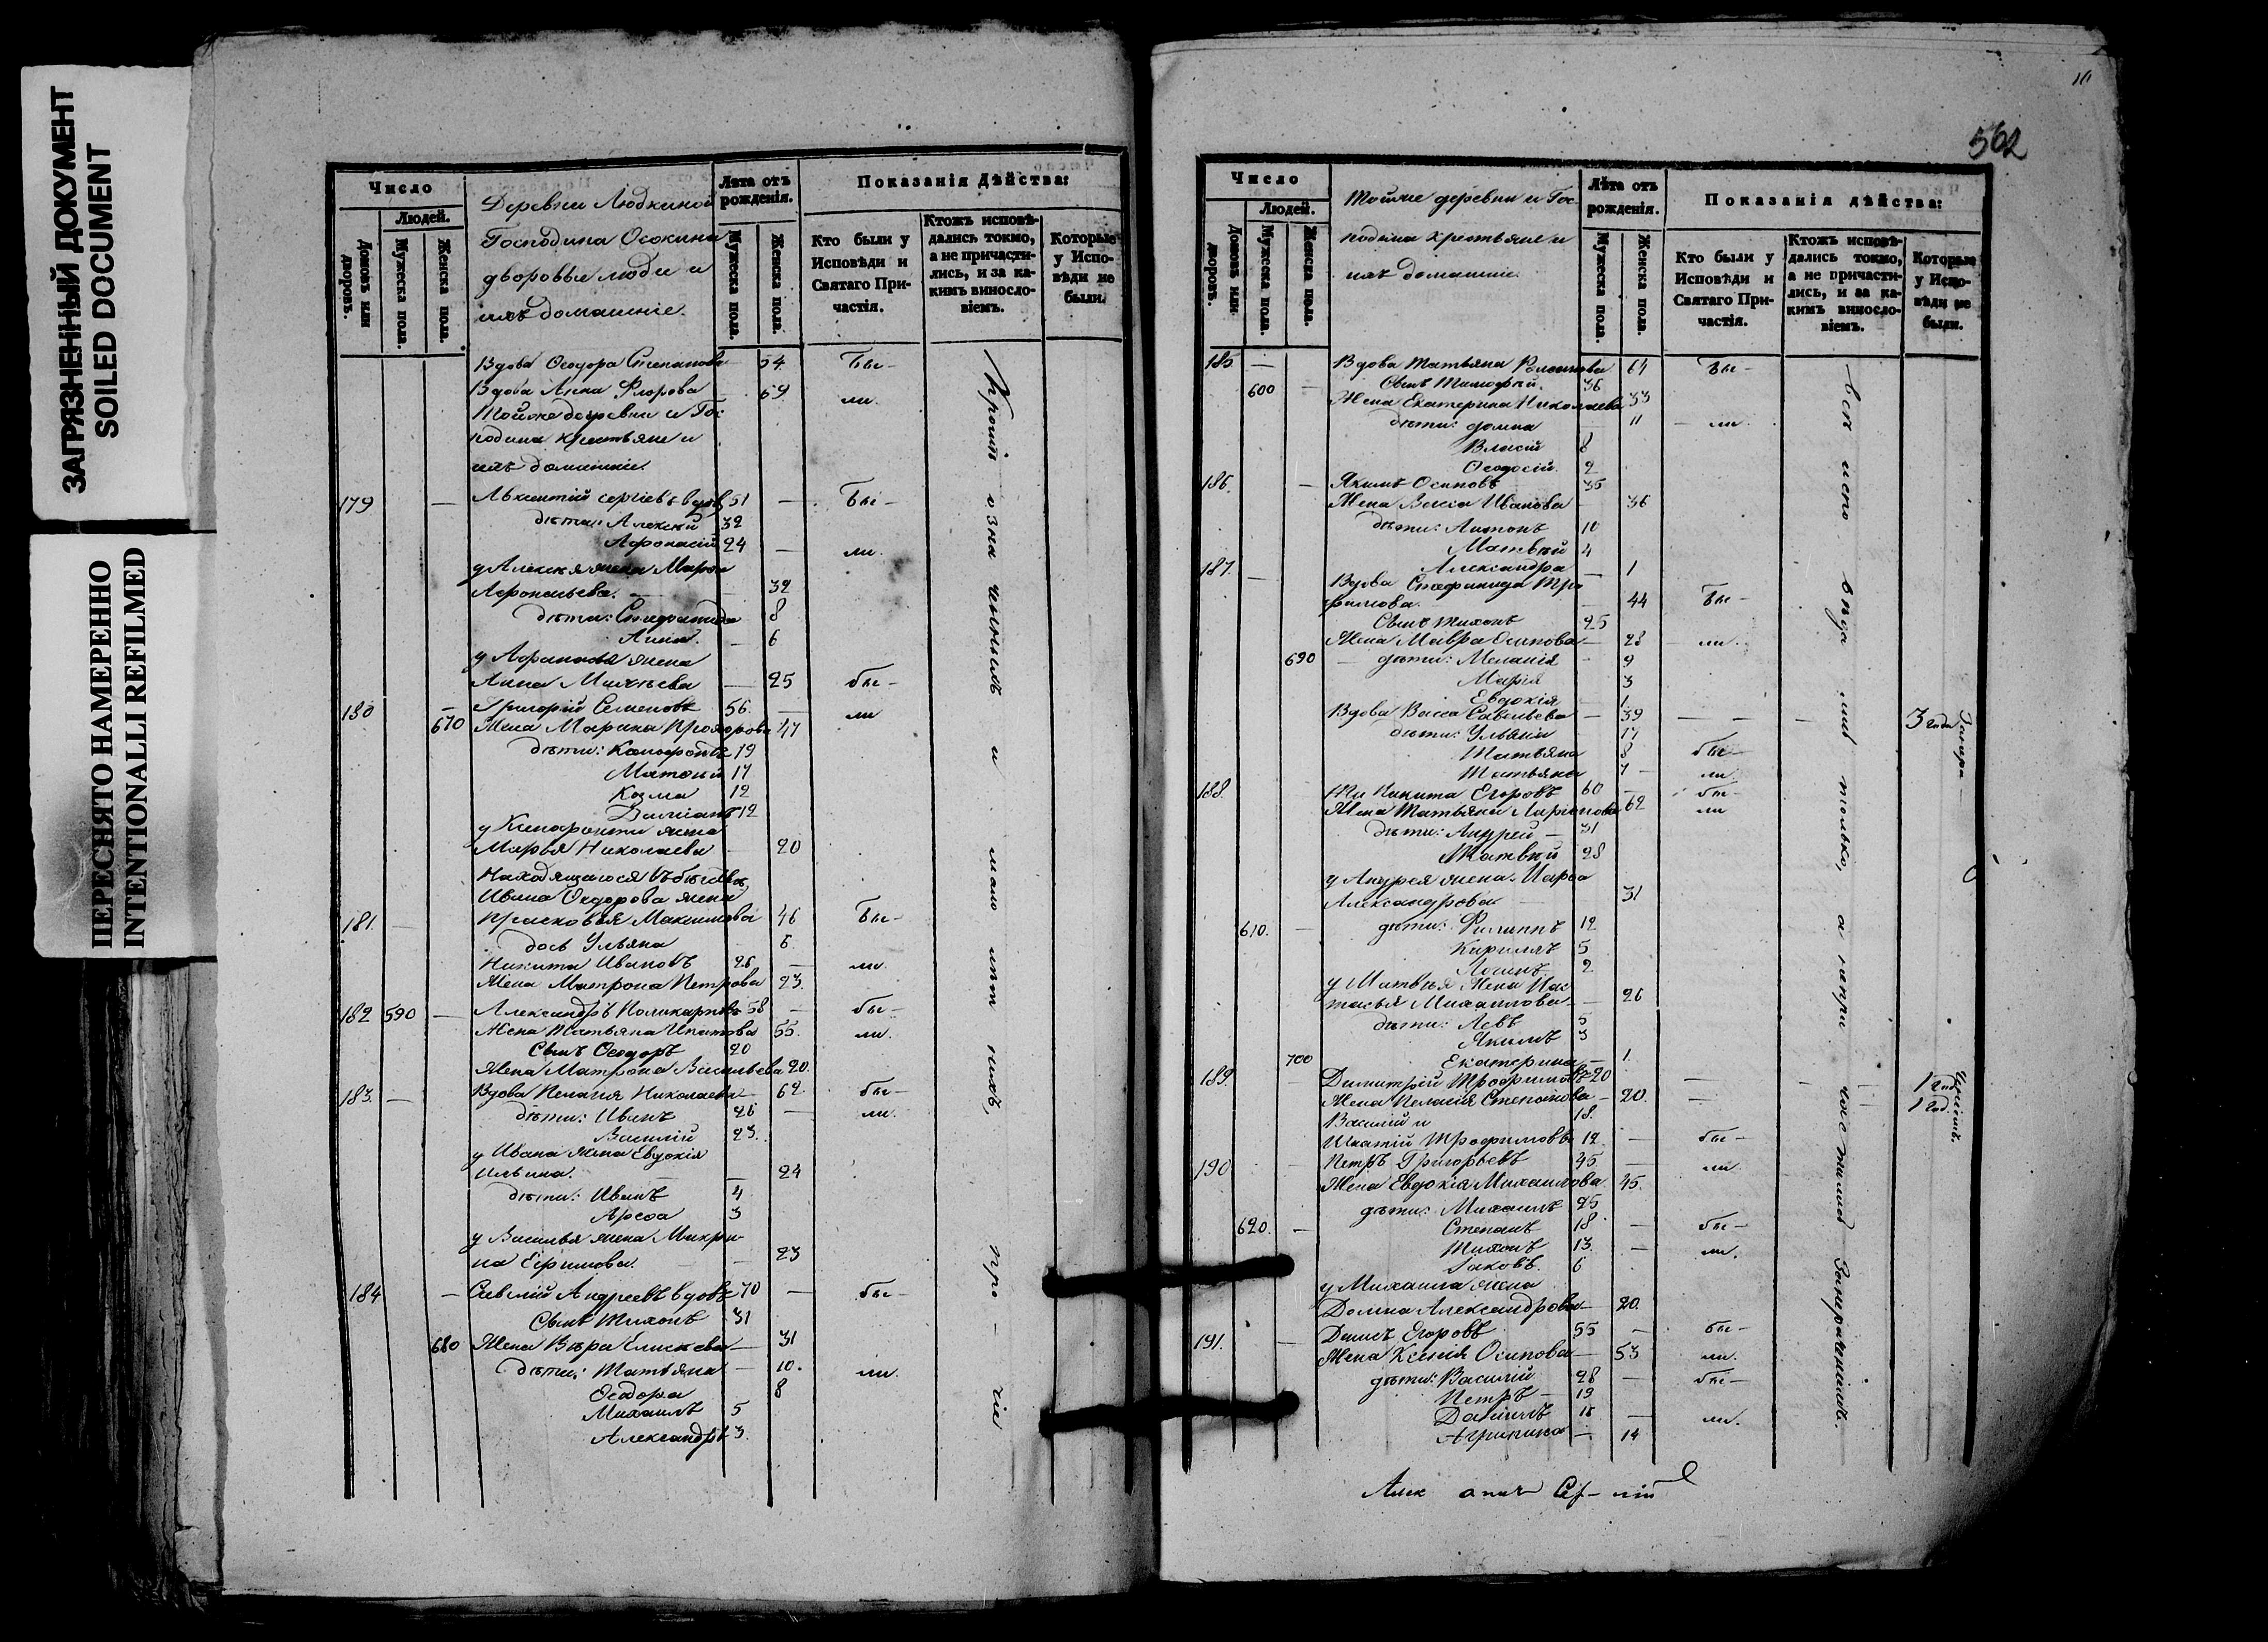 ЗАГРЯЗНЕННЫЙ ДОКУМЕНТ
SOILED DOCUMENT
ПЕРЕСНЯТО НАМЕРЕННО
INTENTIONALLI REFILMED
Число
Людей.
Домовъ или дворовъ.
Мужеска пола.
Женска пола.
Деревни Людкиной
Господина Осокина
дворовые люди и
ихъ домашніе.
Лѣта отъ рожденія.
Мужеска пола.
Женска пола.
Показанія дѣйства:
Кто были у Исповѣди и Святаго Причастія.
Ктожъ исповѣдались токмо, а не причастились, и за какимъ винословіемъ.
Которые у Исповѣди не были.
Вдова Ѳеодора Степанова 54 бы-
Вдова Анна Флорова 69 ли.
Тойже деревни и Гос
подина крестьяне и
ихъ домашніе.
179 — Авксентій Сергіевъ вдовъ 51 — бы-
дѣти: Алексѣй 32
Афонасій 24 — ли.
у Алексѣя жена Марѳа
Афонасьева. — 32
дѣти: Степанида 8
Анна. — 6
у Афанасія жена
Анна — 25 бы-
180 — Григорій Семеновъ 56. — ли
670 Жена Марина Прохорова 47
дѣти: Ксенофонтъ 19
Матвѣй 17
Козма 12
Даміанъ 12
у Ксенофонта жена
Марья Николаева — 20
Находящагося въ бѣгствѣ
Ивана Ѳедорова жена
181. — Прасковья Максимова 46 бы-
дочь Ульяна 6.
Никита Ивановъ 26 — ли.
Жена Матрона Петрова 23.
182 590 — Александръ Поликарповъ 58 — бы-
Жена Татьяна Ипатова 55. ли.
Сынъ Ѳеодоръ 20
Жена Матрона Васильева 20.
183. — Вдова Пелагія Николаева 62 бы-
дѣти: Иванъ 26 — ли.
Василій 23.
у Ивана жена Евдокія
Ильина. — 24
дѣти: Иванъ 4
3
у Василья жена Макри-
на Ефимова. — 23
184 — Савелій Андреевъ вдовъ 70 — бы-
Сынъ Тихонъ 31
680 Жена Вѣра Елисѣева — 31
дѣти: Татьяна — 10. ли.
Ѳеодора 8
Михаилъ 5
Александръ 3.
562
Число
Людей.
Домовъ или дворовъ.
Мужеска пола.
Женска пола.
Тойже деревни и Гос
подина крестьяне и
ихъ домашніе.
Лѣта отъ рожденія.
Мужеска пола.
Женска пола.
Показанія дѣйства:
Кто были у Исповѣди и Святаго Причастія.
Ктожъ исповѣдались токмо, а не причастились, и за какимъ винословіемъ.
Которые у Исповѣди не были.
185. — Вдова Татьяна 64 бы-
Сынъ Тимофей. 36
600 — Жена Екатерина Николаева 33
дѣти: Домна — 11 — ли.
Власій 8
Ѳеодосій. 2
186. — Якимъ Осиповъ 35
Жена Васса Иванова — 36
дѣти: Антонъ 10
Матвѣй 4
Александра — 1
187. — Вдова Стефанида Тро
фимова. — 44 бы-
Сынъ Тихонъ 25
Жена Мавра Осипова — 28 — ли.
690 — дѣти: Меланія — 9
Марія 3
Евдокія 1.
Вдова Васса Савельева — 39 — — — 3 года
дѣти: Ульяна 17
Татьяна 8 бы-
Татьяна 7 — ли.
188. Никита Егоровъ 60 — бы-
Жена Татьяна Ларіонова 62 ли
дѣти: Андрей — 31
Матвѣй 28
у Андрея жена Марѳа
Александрова — 31
610. — дѣти: Филиппъ 12
Кирилъ 5
Логинъ 2
у Матвѣя жена Нас
тасья Михаилова — 26
дѣти: Левъ 5
Якимъ 3
700 Екатерина — 1.
189. — Димитрій Трофимовъ 20 — — 1 год
Жена Пелагія Степанова — 20. — — 1 год.
Василій и 18.
Игнатій Трофимовы 12 — бы-
190 — Петръ Григорьевъ 45. — ли.
Жена Евдокія Михаилова 45.
дѣти: Михаилъ 25
620. — Степанъ 18 — бы-
Тихонъ 13. — ли.
Іаковъ. 6
у Михаила жена
Домна Александрова — 20.
191. — Денисъ Егоровъ 55 — бы-
Жена Ксенія Осипова — 53 ли.
дѣти: Василій 28 — бы-
Петръ — 19
Даніилъ — ли.
Агрипина — 14